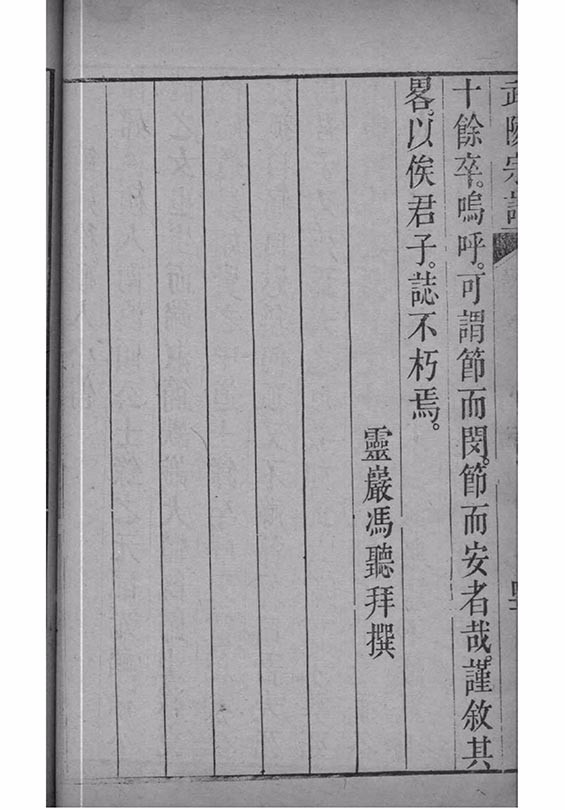 武陵宗譜
十餘卒。嗚呼。可謂節而閔。節而安者哉。謹敘其
畧。以俟君子。誌不朽焉。
靈巖馮聽拜撰